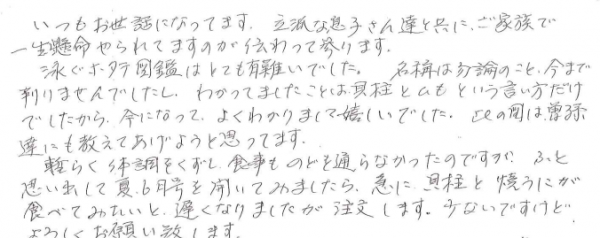 いつもお世話になってます。立派な息子さん達と共に、ご家族で
一生懸命やられてますのが伝わって参ります。
泳ぐホタテ図鑑はとても有難いでした。名称は勿論のこと、今まで
判りませんでしたし、わかってましたことは貝柱とひも という言い方だけ
でしたから、今になって、よくわかりまして嬉しいでした。この図は曽孫
達にも教えてあげようと思ってます。
軽らく体調をくずし、食事ものどを通らなかったのですが、ふと
思い出して夏、6月号を開いてみましたら、急に、貝柱と焼うにが
食べてみたいと、遅くなりましたが注文します。少ないですけど
よろしくお願い致します。